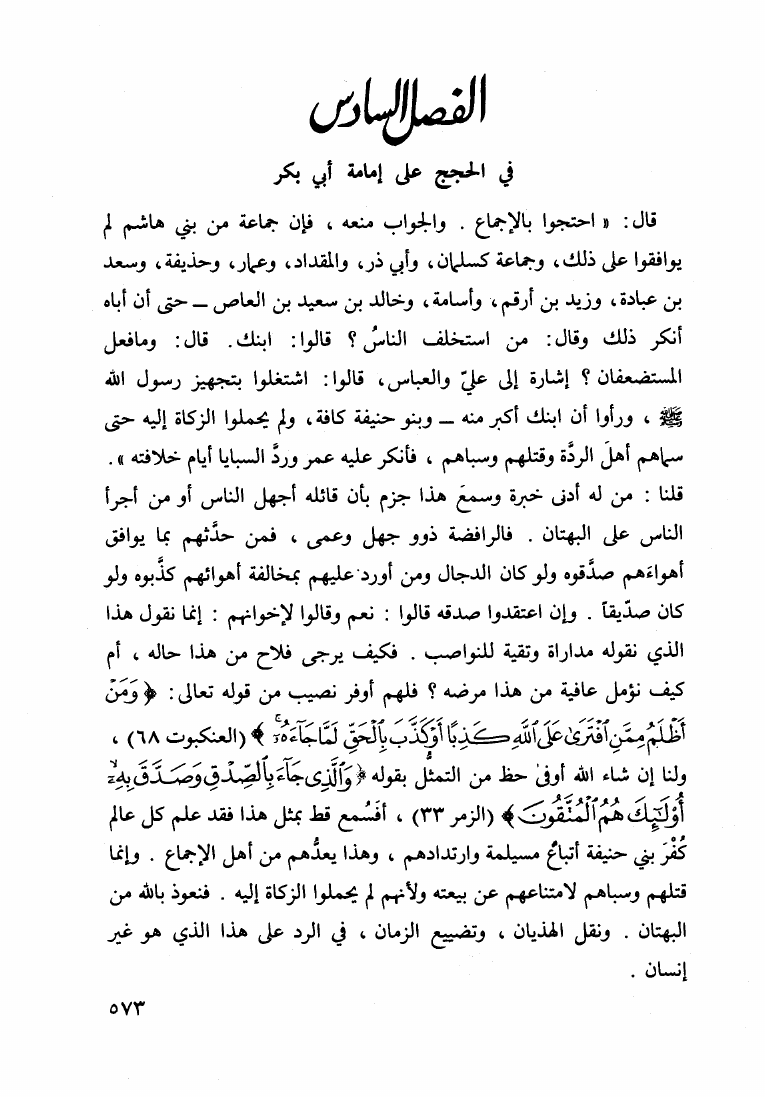 الفصل السادس
في الحجج على إمامة أبي بكر
قال: « احتجوا بالإجماع . والجواب منعه ، فإن جماعة من بني هاشم لم
يوافقوا على ذلك، وجماعة كسلمان، وأبي ذر، والمقداد، وعمار، وحذيفة، وسعد
بن عبادة، وزيد بن أرقم، وأسامة، وخالد بن سعيد بن العاص ــ حتى أن أباه
أنكر ذلك وقال: من استخلف الناسُ ؟ قالوا: ابنك. قال: ومافعل
المستضعفان ؟ إشارة إلى عليّ والعباس، قالوا: اشتغلوا بتجهيز رسول الله
ﷺ ، ورأوا أن ابنك أكبر منه ــ وبنو حنيفة كافة، ولم يحملوا الزكاة إليه حتى
سماهم أهلَ الردَّة وقتلهم وسباهم ، فأنكر عليه عمر وردَّ السبايا أيام خلافته ».
قلنا : من له أدنى خبرة وسمعَ هذا جزم بأن قائله أجهل الناس أو من أجرأ
الناس على البهتان . فالرافضة ذوو جهل وعمى ، فمن حدَّثهم بما يوافق
أهواءَهم صدَّقوه ولو كان الدجال ومن أورد عليهم بمخالفة أهوائهم كذَّبوه ولو
كان صدّيقاً . وإن اعتقدوا صدقه قالوا : نعم وقالوا لإخوانهم : إنما نقول هذا
الذي نقوله مداراة وتقية للنواصب . فكيف يرجى فلاح من هذا حاله ، أم
كيف نؤمل عافية من هذا مرضه ؟ فلهم أوفر نصيب من قوله تعالى: ﴿ وَمَنْ
أَظْلَمُ مِمَّنِ ٱفْتَرَىٰ عَلَى ٱللَّهِ كَذِبًا أَوْ كَذَّبَ بِٱلْحَقِّ لَمَّا جَآءَهُۥٓ ﴾ (العنكبوت ٦٨) ،
ولنا إن شاء الله أوفىٰ حظ من التمثُّل بقوله ﴿ وَٱلَّذِى جَآءَ بِٱلصِّدْقِ وَصَدَّقَ بِهِۦٓ
أُو۟لَٰٓئِكَ هُمُ ٱلْمُتَّقُونَ ﴾ (الزمر ٣٣) ، أفسُمع قط بمثل هذا فقد علم كل عالم
كُفْرَ بني حنيفة أتباعُ مسيلمة وارتدادهم ، وهذا يعدُّهم من أهل الإجماع . وإنما
قتلهم وسباهم لامتناعهم عن بيعته ولأنهم لم يحملوا الزكاة إليه . فنعوذ بالله من
البهتان . ونقل الهذيان ، وتضييع الزمان ، في الرد على هذا الذي هو غير
إنسان .
٥٧٣